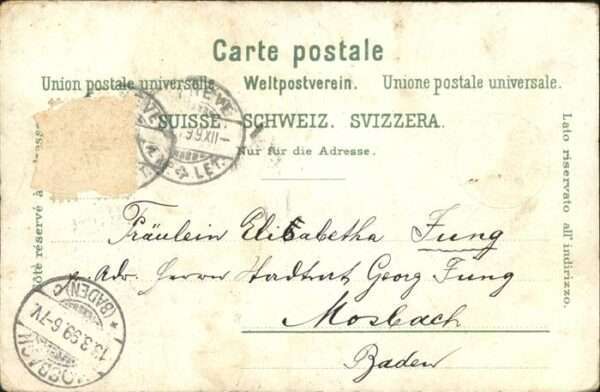 Carte postale
Union postale universelle. Weltpostverein. Unione postale universale.
SUISSE. SCHWEIZ. SVIZZERA.
Nur für die Adresse.
Côté réservé à
Lato riservato all' indirizzo.
GENÈVE
9.XII
LET.
Fräulein Elisabetha Jung
p. Adr. Herrn Stadtrat Georg Jung
Mosbach
Baden
MOSBACH (BADEN)
13.3.99.6-7V.